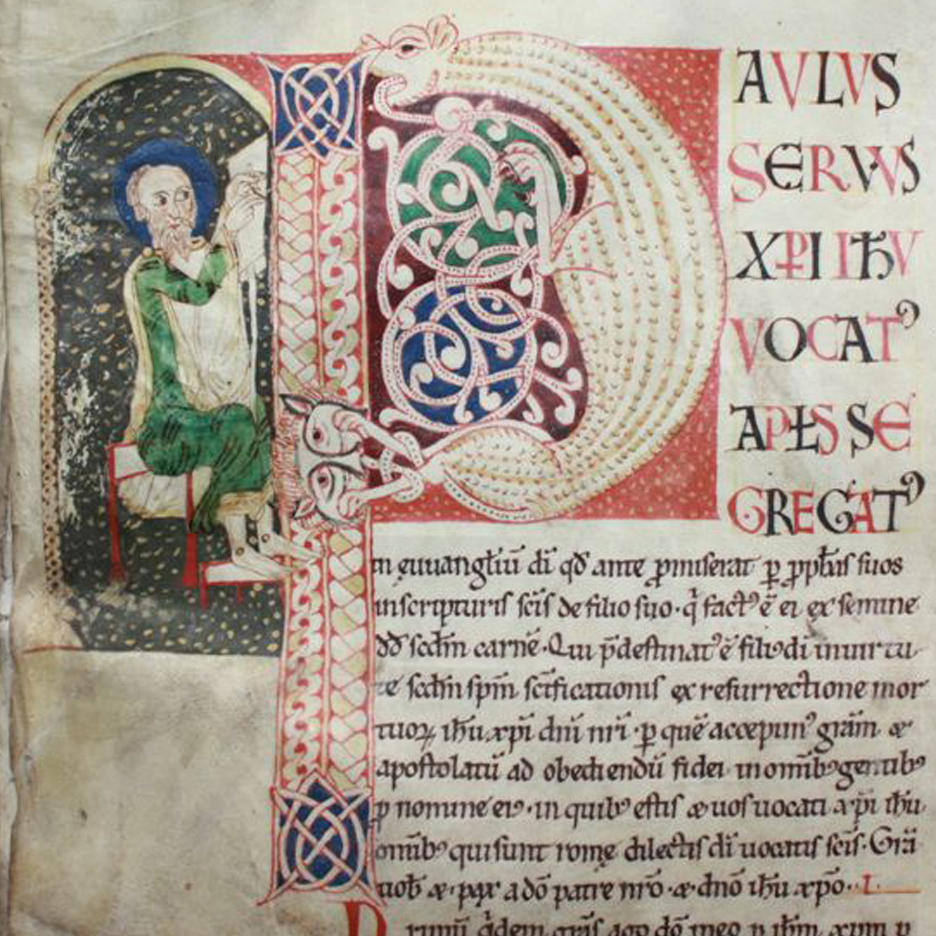 PAULUS
SERVUS
XPI IHU
VOCATꝰ
APLS SE
GREGATꝰ
in euuangliū di qđ ante ꝓmiserat ꝑ ꝓphas suos
in scripturis scis de filio suo · q̇ factꝰ ē ei ex semine
dđ scđm carnē · Qui p̄destinatꝰ ē filiꝰ di in uirtu
te scđm spm scificationis ex resurrectione mor
tuoꝝ ihu xpi dni nri · ꝑ quē accepimꝰ grām &
apostolatū ad obediendū fidei in omibꝰ gentibꝰ
ꝓ nomine eiꝰ · in quibꝰ estis & uos uocati xpi ihu
omibꝰ qui sunt romę dilectis di uocatis scis · Gra
uob & pax a dō patre nro · & dno ihu xpo · I ·
Primū q̇dem grās ago dō meo ꝑ ihm xpm ꝑ